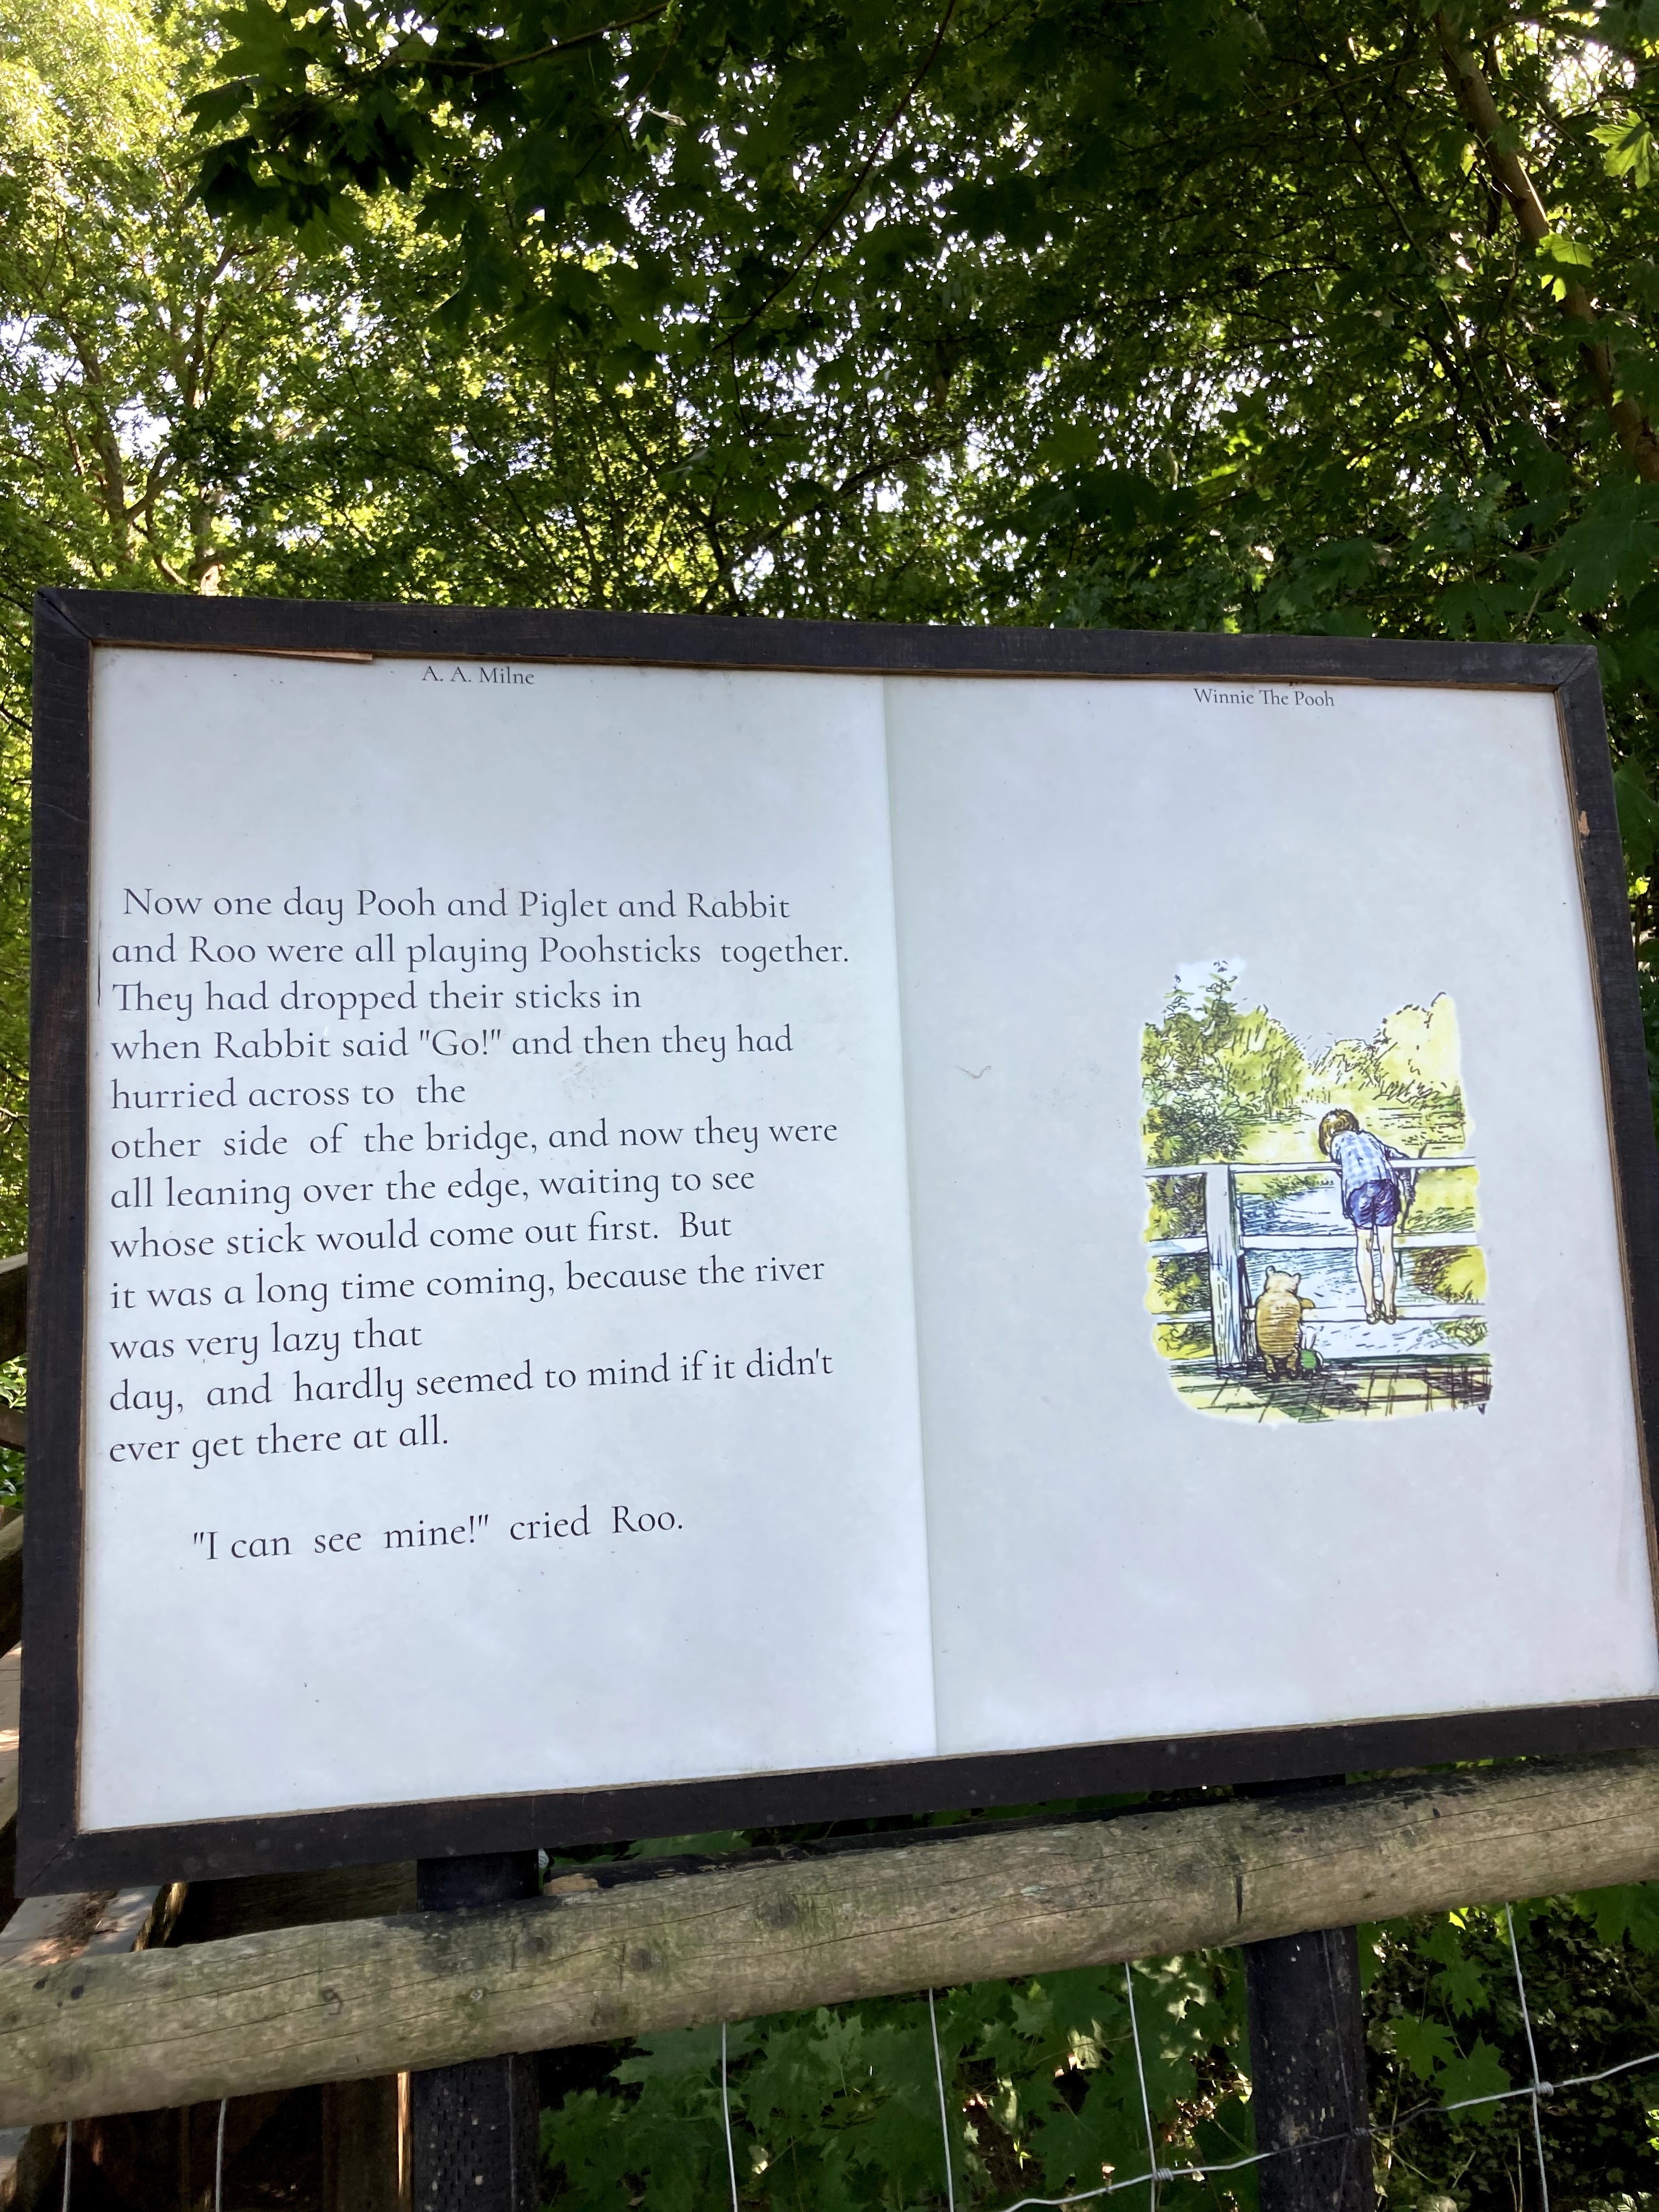 A. A. Milne
Winnie The Pooh
Now one day Pooh and Piglet and Rabbit
and Roo were all playing Poohsticks together.
They had dropped their sticks in
when Rabbit said "Go!" and then they had
hurried across to the
other side of the bridge, and now they were
all leaning over the edge, waiting to see
whose stick would come out first. But
it was a long time coming, because the river
was very lazy that
day, and hardly seemed to mind if it didn't
ever get there at all.
"I can see mine!" cried Roo.